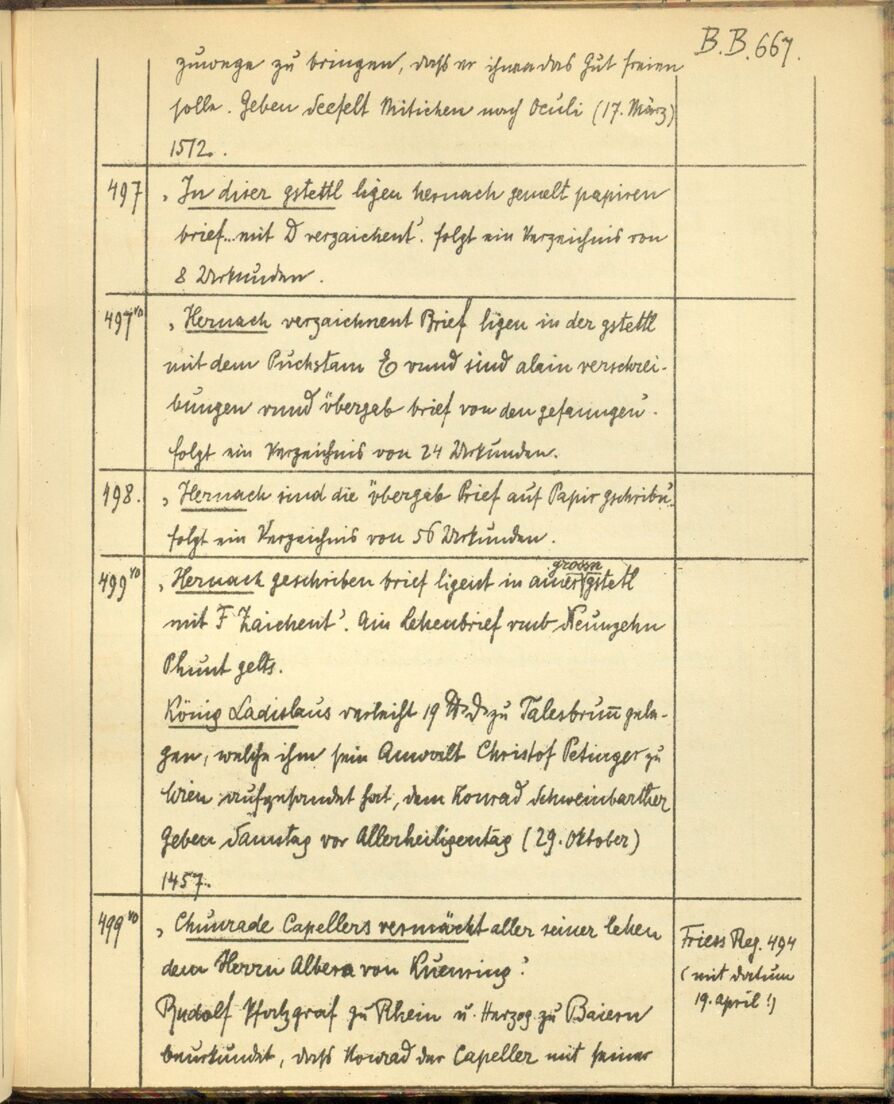 B.B.667.
zuwege zu bringen, daß er ihnen das Gut freien
solle. Geben Seefelt Mitichen nach Oculi (17. März)
1512.
497 „In diser gstettl ligen hernach gemelt papiren
brief... mit D verzaichent“. folgt ein Verzeichnis von
8 Urkunden.
497vo „Hernach verzaichnent Brief ligen in der gstettl
mit dem Puchstam E vnnd sind alain verschrei-
bungen vnnd übergab brief von den gefanngen“.
folgt ein Verzeichnis von 24 Urkunden.
498. „Hernach sind die übergab Brief auf Papir gschribn“
folgt ein Verzeichnis von 56 Urkunden.
grossn
499vo „Hernach geschriben brief ligent in ainer gstetl
mit F Zaichent“. Ain Lehenbrief vmb Neunzehn
Phunt gelts.
König Ladislaus verleiht 19 ℔ ₰ zu Talesbrunn gele-
gen, welche ihm sein Anwalt Christof Petinger zu
Wien aufgesandet hat, dem Konrad Schweinbarther
Geben Samstag vor Allerheiligentag (29. Oktober)
1457.
499vo „Chunrade Capellers vermächt aller seiner lehen
dem Herrn Albero von Kuenring“
Friess Reg. 494
(mit datum
19. April!)
Rudolf Pfalzgraf zu Rhein u. Herzog zu Baiern
beurkundet, daß Konrad der Capeller mit seiner